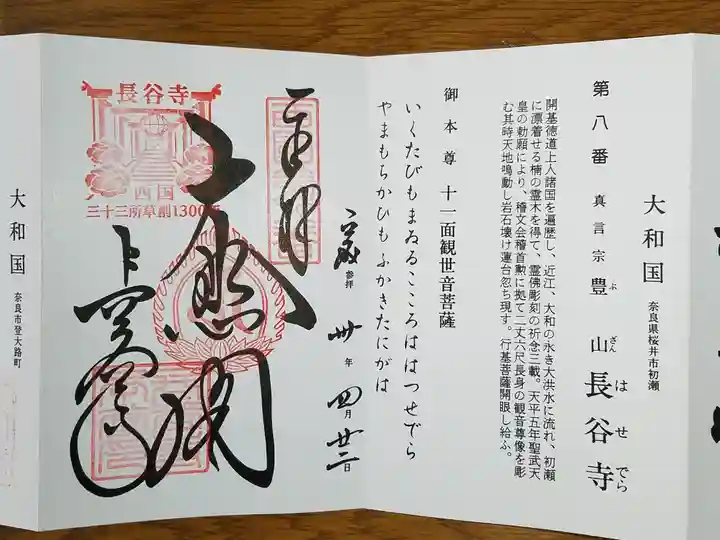 大和国
奈良県桜井市初瀬
第八番 真言宗 豊山 長谷寺
ぶ ざん は せ でら
開基徳道上人諸国を遍歴し、近江、大和の永き大洪水に流れ、初瀬
に漂着せる楠の霊木を得て、霊佛彫刻の祈念三載。天平五年聖武天
皇の勅願により、稽文会稽首勲に拠て二丈六尺長身の観音尊像を彫
む其時天地鳴動し岩石壊け蓮台忽ち現す。行基菩薩開眼し給ふ。
御本尊 十一面観世音菩薩
いくたびもまゐるこころははつせでら
やまもちかひもふかきたにがは
奉拝
参拝
卅年四月廿二日
長谷寺
西国
三十三所草創1300年
大悲閣
大和国
奈良市登大路町